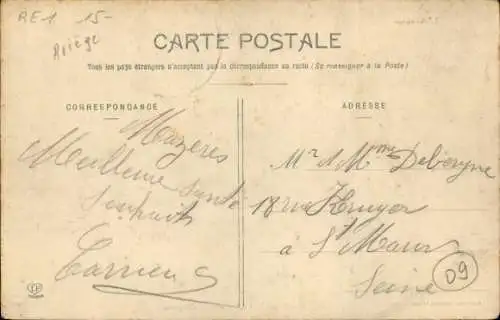 RE1 15-
Ariège
CARTE POSTALE
Tous les pays étrangers n'acceptent pas la correspondance au recto (Se renseigner à la Poste)
CORRESPONDANCE
Mazères
Meilleure santé
Souhaits
ADRESSE
Mr & Mme Debergne
18 rue Kruger
à St Maur
Seine
09